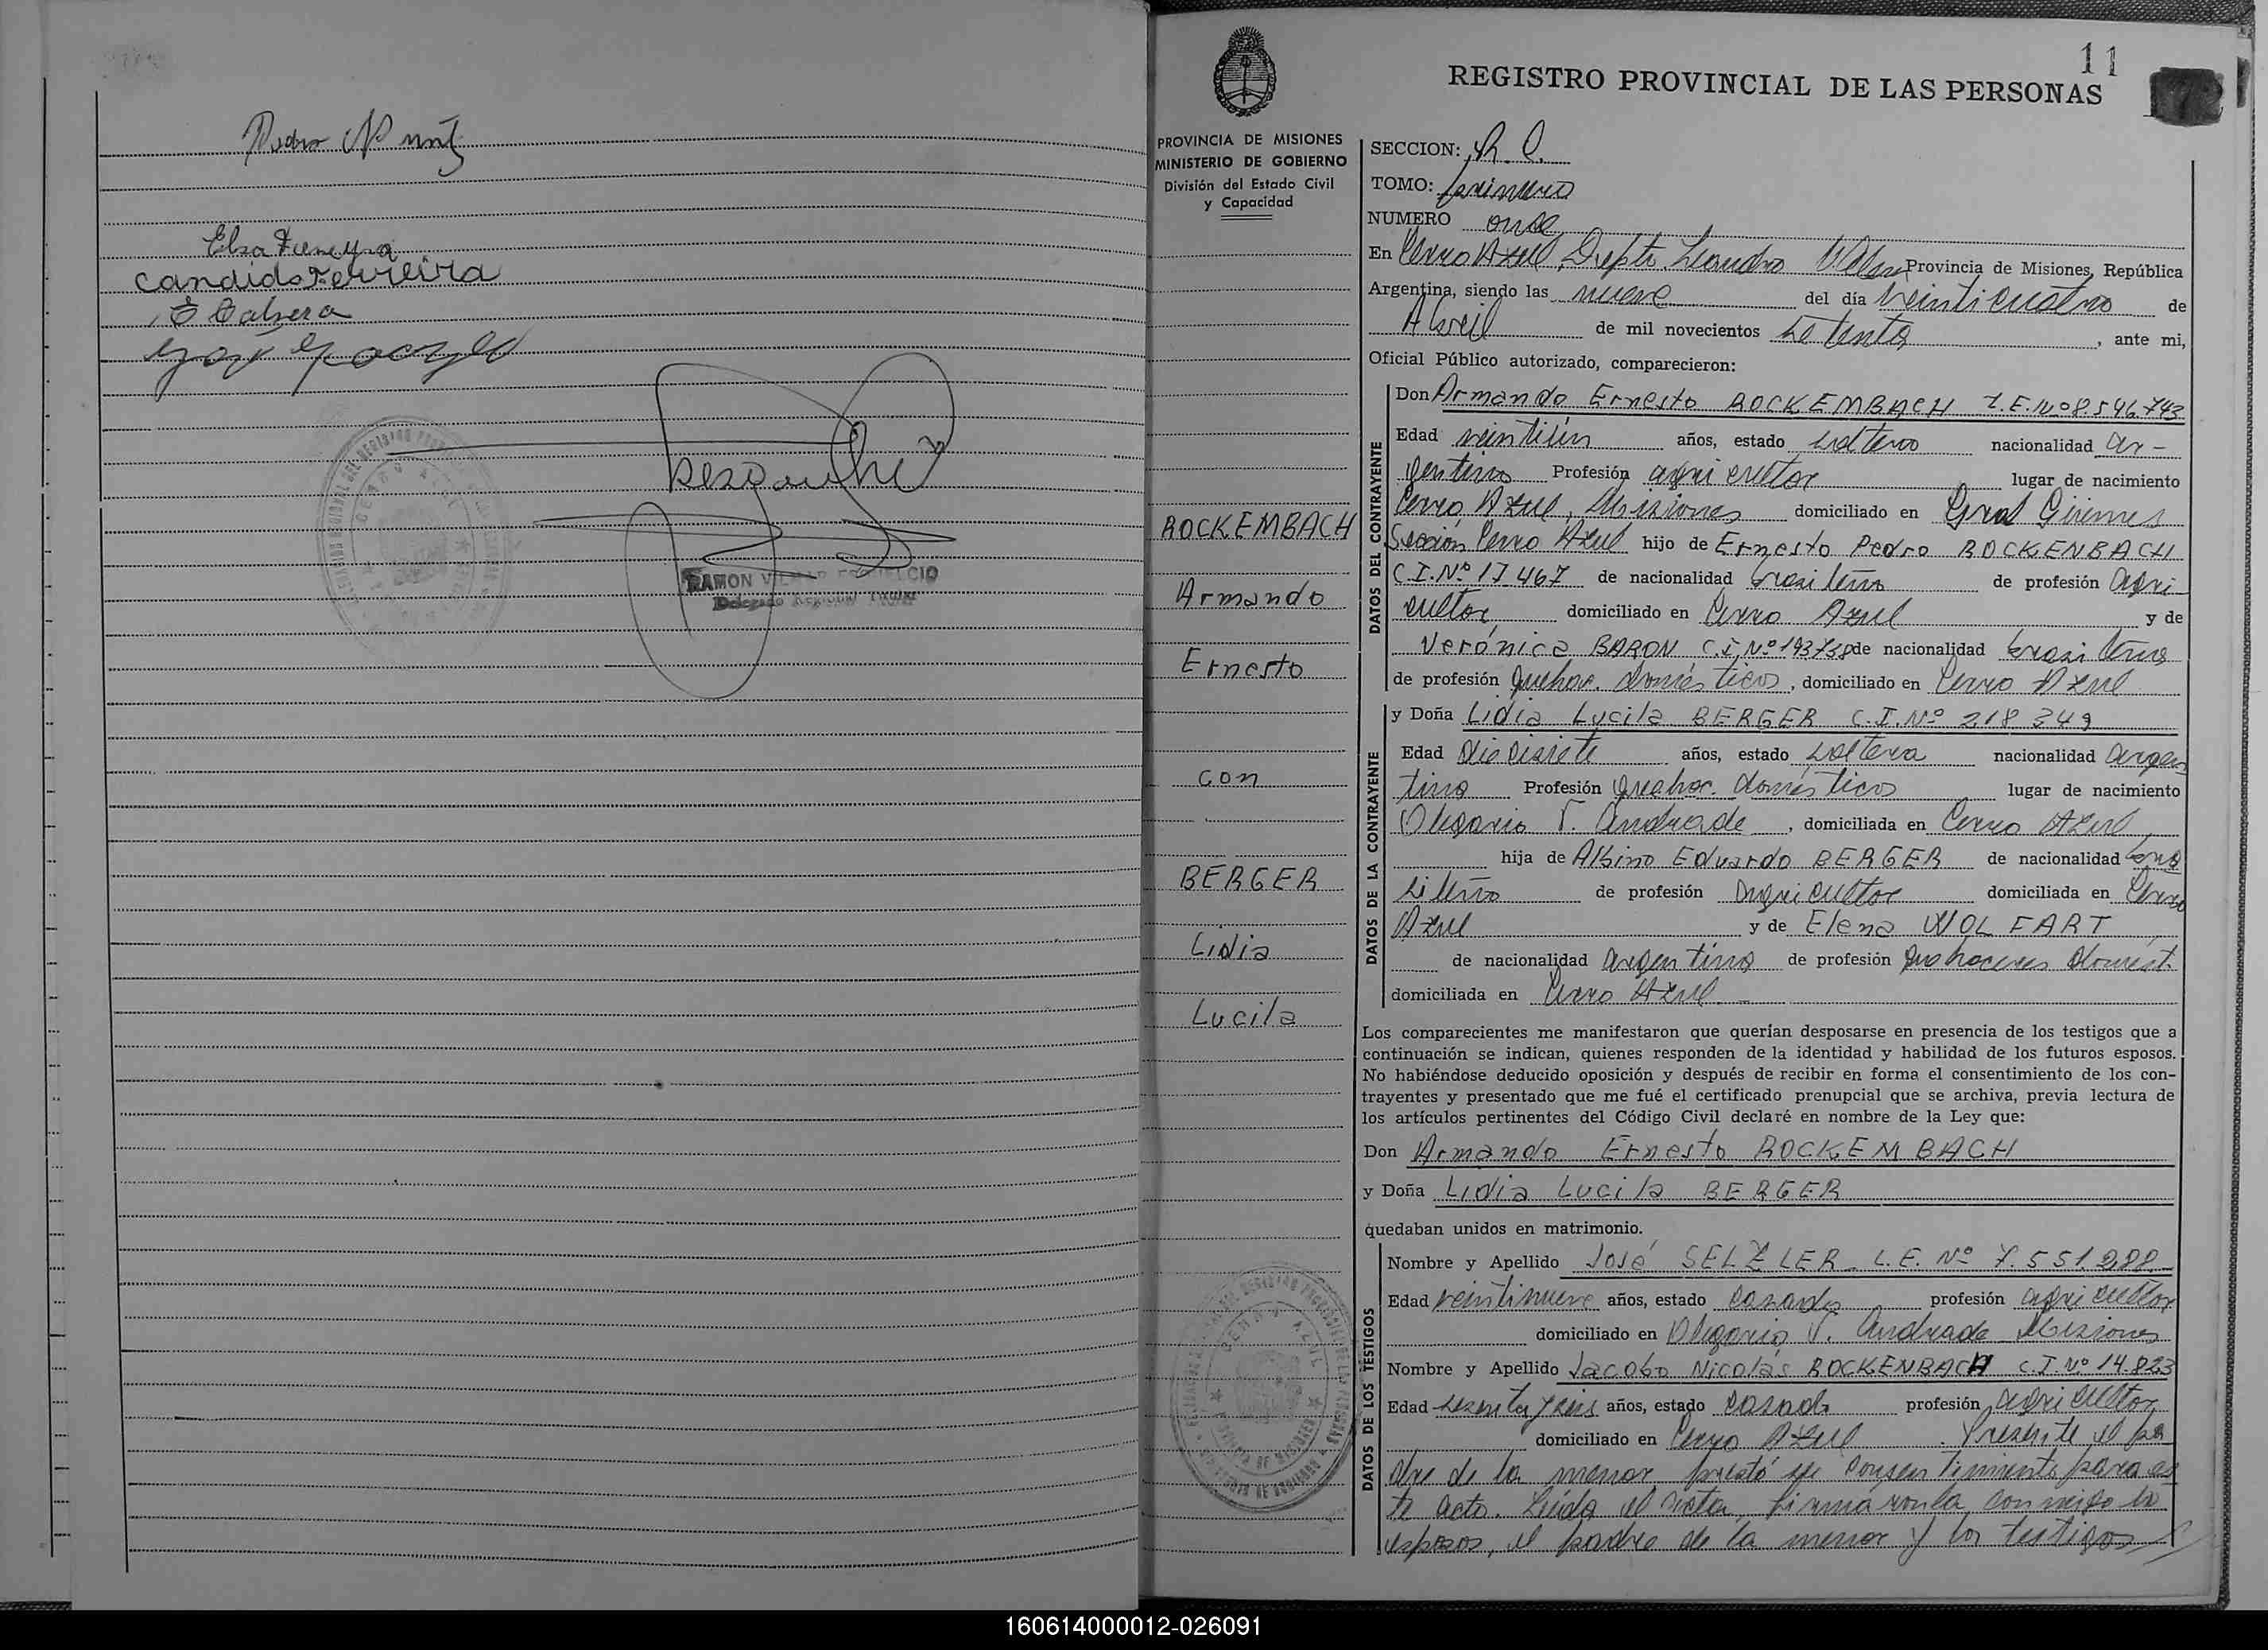 Pedro
Elsa Ferreyra
Candido Ferreira
E Cabrera
RAMON
Delegado Regional Titular
11
REGISTRO PROVINCIAL DE LAS PERSONAS
PROVINCIA DE MISIONES
MINISTERIO DE GOBIERNO
División del Estado Civil
y Capacidad
ROCKEMBACH
Armando
Ernesto
con
BERGER
Lidia
Lucila
SECCION: R. C.
TOMO: primero
NUMERO once
En Cerro Azul, Depto. Leandro N. Alem Provincia de Misiones, República
Argentina, siendo las nueve del día veinticuatro de
Abril de mil novecientos setenta, ante mi,
Oficial Público autorizado, comparecieron:
DATOS DEL CONTRAYENTE
Don Armando Ernesto ROCKEMBACH L.E. Nº 8.546.743
Edad veintiún años, estado soltero nacionalidad ar-
gentino Profesión agricultor lugar de nacimiento
Cerro Azul, Misiones domiciliado en Gral Güemes
Sección Cerro Azul hijo de Ernesto Pedro ROCKENBACH
C.I. Nº 17.467 de nacionalidad brasileño de profesión agri
cultor domiciliado en Cerro Azul y de
Verónica BARON C.I. Nº de nacionalidad brasileña
de profesión quehac. domésticos, domiciliado en Cerro Azul
DATOS DE LA CONTRAYENTE
y Doña Lidia Lucila BERGER C.I. Nº 218.349
Edad diecisiete años, estado soltera nacionalidad argen
tina Profesión quehac. domésticos lugar de nacimiento
Olegario V. Andrade, domiciliada en Cerro Azul
hija de Albino Eduardo BERGER de nacionalidad bra
sileño de profesión agricultor domiciliada en Cerro
Azul y de Elena WOLFART
de nacionalidad argentina de profesión quehaceres domést.
domiciliada en Cerro Azul.
Los comparecientes me manifestaron que querían desposarse en presencia de los testigos que a
continuación se indican, quienes responden de la identidad y habilidad de los futuros esposos.
No habiéndose deducido oposición y después de recibir en forma el consentimiento de los con-
trayentes y presentado que me fué el certificado prenupcial que se archiva, previa lectura de
los artículos pertinentes del Código Civil declaré en nombre de la Ley que:
Don Armando Ernesto ROCKEMBACH
y Doña Lidia Lucila BERGER
quedaban unidos en matrimonio.
DATOS DE LOS TESTIGOS
Nombre y Apellido José SELZLER L.E. Nº 7.551.288
Edad veintinueve años, estado casado profesión agricultor
domiciliado en Olegario V. Andrade Misiones
Nombre y Apellido Jacobo Nicolás ROCKENBACH C.I. Nº 14.823
Edad sesenta y seis años, estado casado profesión agricultor
domiciliado en Cerro Azul. Presente el pa
dre de la menor prestó su consentimiento para es
te acto. Leída el acta, firmáronla conmigo los
esposos, el padre de la menor y los testigos
160614000012-026091